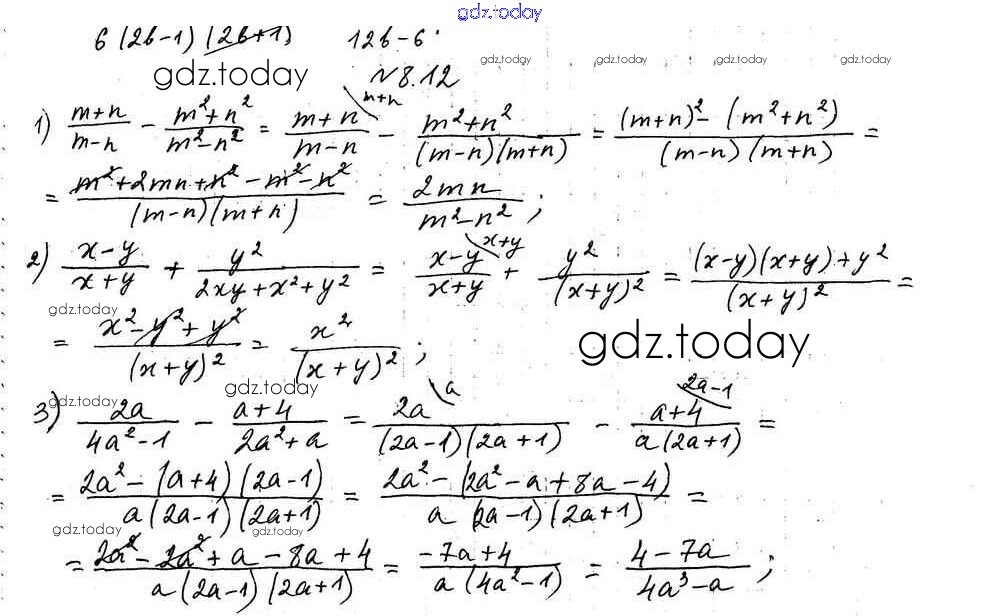 gdz.today
6 (2b-1) (2b+1) 12b-6
gdz.today gdz.today gdz.today gdz.today
№8.12
1) (m+n)/(m-n) - (m²+n²)/(m²-n²) = (m+n)/(m-n) \m+n - (m²+n²)/((m-n)(m+n)) = ((m+n)² - (m²+n²))/((m-n)(m+n)) =
= (m²+2mn+n²-m²-n²)/((m-n)(m+n)) = 2mn/(m²-n²);
2) (x-y)/(x+y) + y²/(2xy+x²+y²) = (x-y)/(x+y) \x+y + y²/(x+y)² = ((x-y)(x+y)+y²)/(x+y)² =
gdz.today
= (x²-y²+y²)/(x+y)² = x²/(x+y)²;
gdz.today
gdz.today
gdz.today
3) 2a/(4a²-1) - (a+4)/(2a²+a) = 2a/((2a-1)(2a+1)) \a - (a+4)/(a(2a+1)) \2a-1 =
= (2a²-(a+4)(2a-1))/(a(2a-1)(2a+1)) = (2a²-(2a²-a+8a-4))/(a(2a-1)(2a+1)) =
gdz.today gdz.today
= (2a²-2a²+a-8a+4)/(a(2a-1)(2a+1)) = (-7a+4)/(a(4a²-1)) = (4-7a)/(4a³-a);